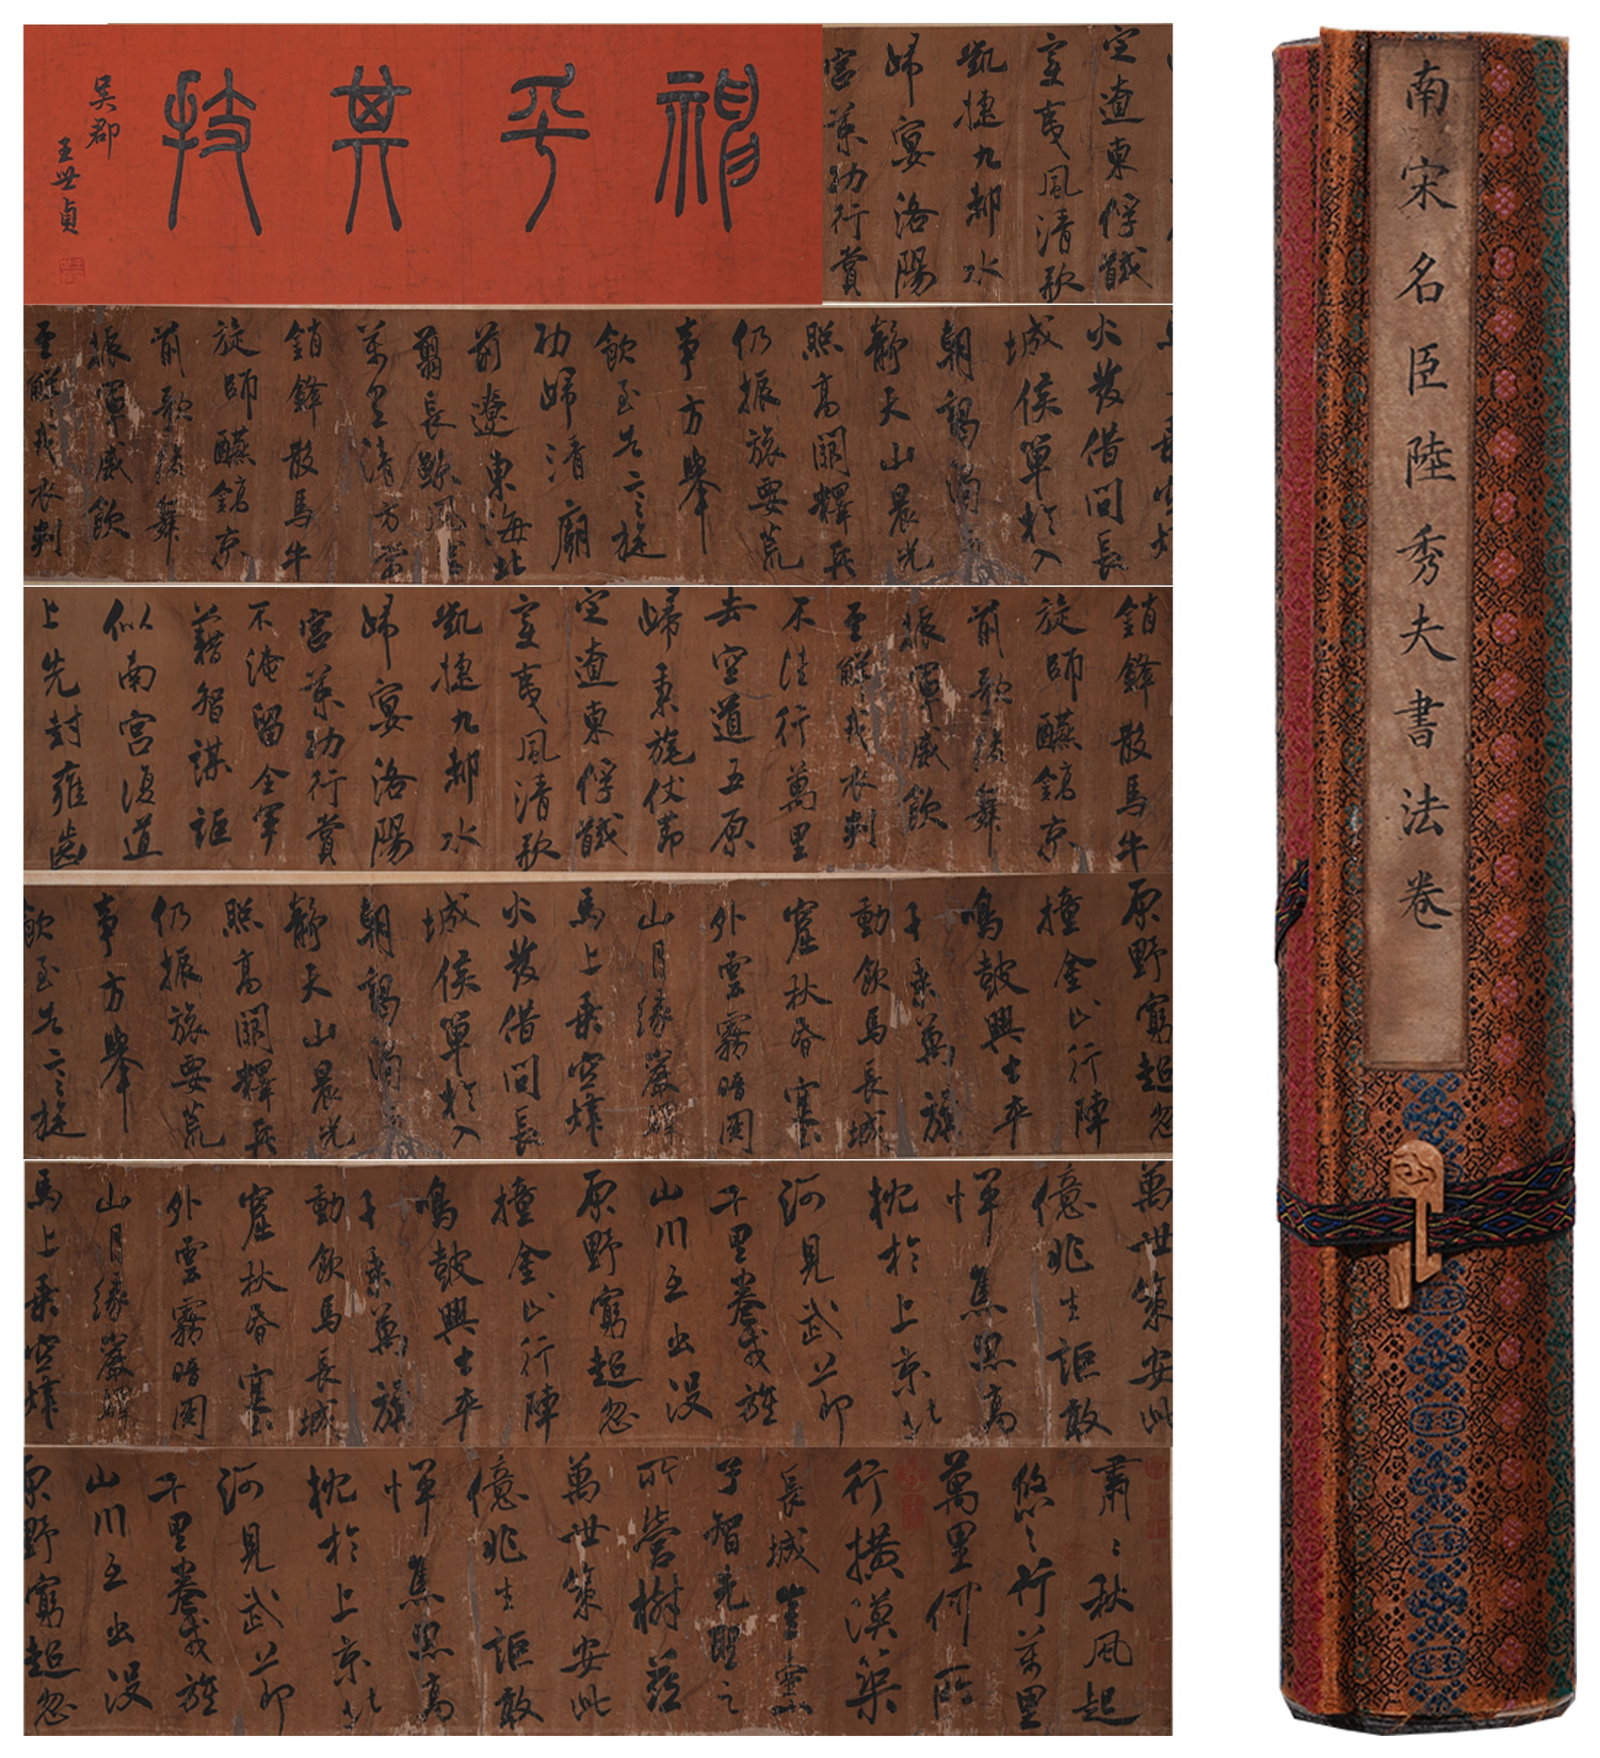 定遼東俘馘
變夷風清歌
凱捷九都水
歸宴洛陽
宮策功行賞
神乎其技
吴郡
王世貞
火發借問長
城侯單於入
朝謁濁氣
靜天山晨光
照高闕釋兵
仍振旅要荒
事方舉
飲至告言旋
功歸清廟
前遼東海北
翦長鯨風雲
萬里清方當
銷鋒散馬牛
旋師醼鎬京
前歌後舞
振軍威飲
至解戎衣判
銷鋒散馬牛
旋師醼鎬京
前歌後舞
振軍威飲
至解戎衣判
不徒行萬里
去空道五原
歸秉旄仗節
定遼東俘馘
變夷風清歌
凱捷九都水
歸宴洛陽
宮策功行賞
不淹留全軍
藉智謀詎
似南宮復道
上先封雍齒
原野窮超忽
撞金止行陣
鳴鼓興士卒
千乘萬旗
動飲馬長城
窟秋昏塞
外雲霧暗關
山月緣巖驛
馬上乘空烽
火發借問長
城侯單於入
朝謁濁氣
靜天山晨光
照高闕釋兵
仍振旅要荒
事方舉
飲至告言旋
萬世策安此
億兆生詎敢
憚焦思高
枕於上京北
河見武節
千里卷戎旌
山川互出没
原野窮超忽
撞金止行陣
鳴鼓興士卒
千乘萬旗
動飲馬長城
窟秋昏塞
外雲霧暗關
山月緣巖驛
馬上乘空烽
肅肅秋風起
悠悠行萬里
萬里何所
行橫漠築
長城豈臺小
子智先聖之
所營樹茲
萬世策安此
億兆生詎敢
憚焦思高
枕於上京北
河見武節
千里卷戎旌
山川互出没
原野窮超忽
南宋名臣陸秀夫書法卷